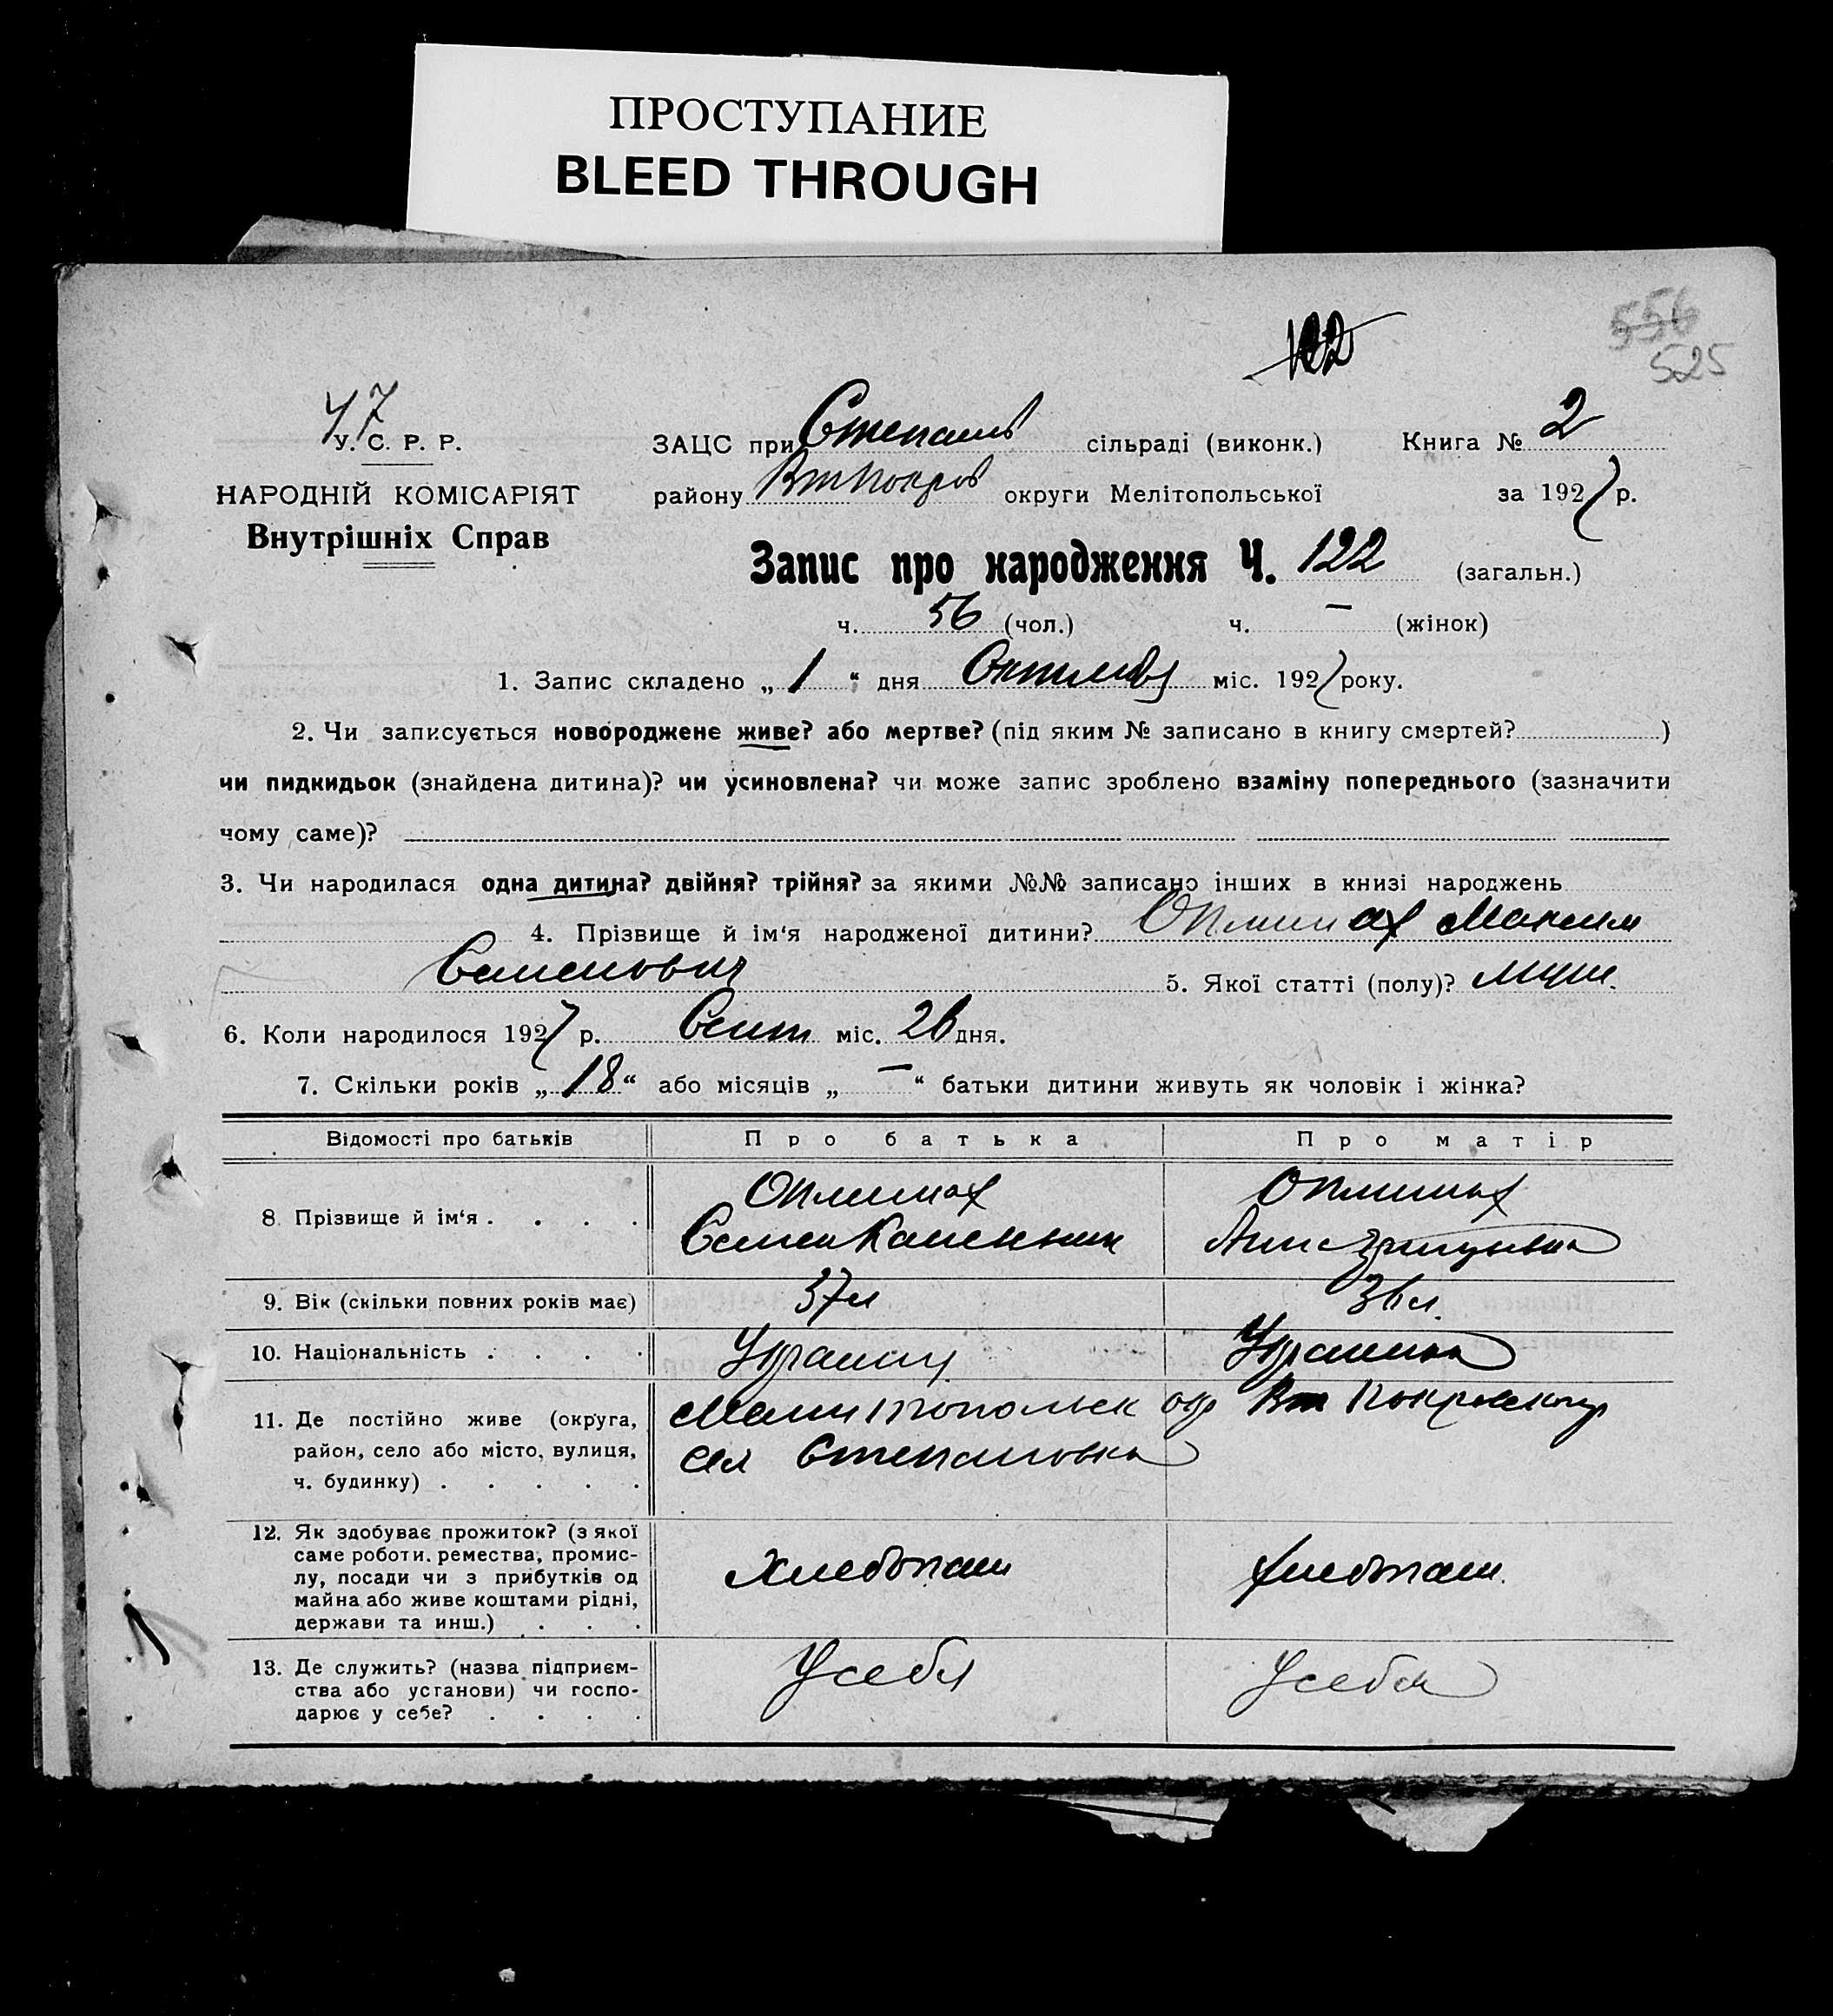 ПРОСТУПАНИЕ
BLEED THROUGH
122
556
525
47
У. С. Р. Р.
ЗАЦС при Степанов сільраді (виконк.) Книга № 2
НАРОДНІЙ КОМІСАРІЯТ
району ВтПокров округи Мелітопольської за 1927 р.
Внутрішніх Справ
Запис про народження Ч. 122 (загальн.)
ч. 56 (чол.) ч. — (жінок)
1. Запис складено „ 1 “ дня Октября міс. 1927 року.
2. Чи записується новороджене живе? або мертве? (під яким № записано в книгу смертей? )
чи пидкидьок (знайдена дитина)? чи усиновлена? чи може запис зроблено взаміну попереднього (зазначити
чому саме)?
3. Чи народилася одна дитина? двійня? трійня? за якими №№ записано інших в книзі народжень
4. Прізвище й ім‘я народженої дитини? Максим
Семенович 5. Якої статті (полу)? муж.
6. Коли народилося 1927 р. Сент міс. 26 дня.
7. Скільки років „ 18 “ або місяців „ — “ батьки дитини живуть як чоловік і жінка?
Відомості про батьків Про батька Про матір
8 Прізвище й ім‘я . . . .
Семен
9. Вік (скільки повних років має) 37 л 36 л.
10. Національність . . . . Украинц Украинка
11. Де постійно живе (округа, Мелитопольск окр Вт Покровского
район, село або місто, вулиця, сел Степановка
ч. будинку) . . . . .
12. Як здобуває прожиток? (з якої
саме роботи. ремества, промис-
лу, посади чи з прибутків од Хлебопаш Хлебопаш.
майна або живе коштами рідні,
держави та инш.) . . .
13. Де служить? (назва підприєм-
ства або установи) чи госпо- У себя У себя
дарює у себе? . . . .